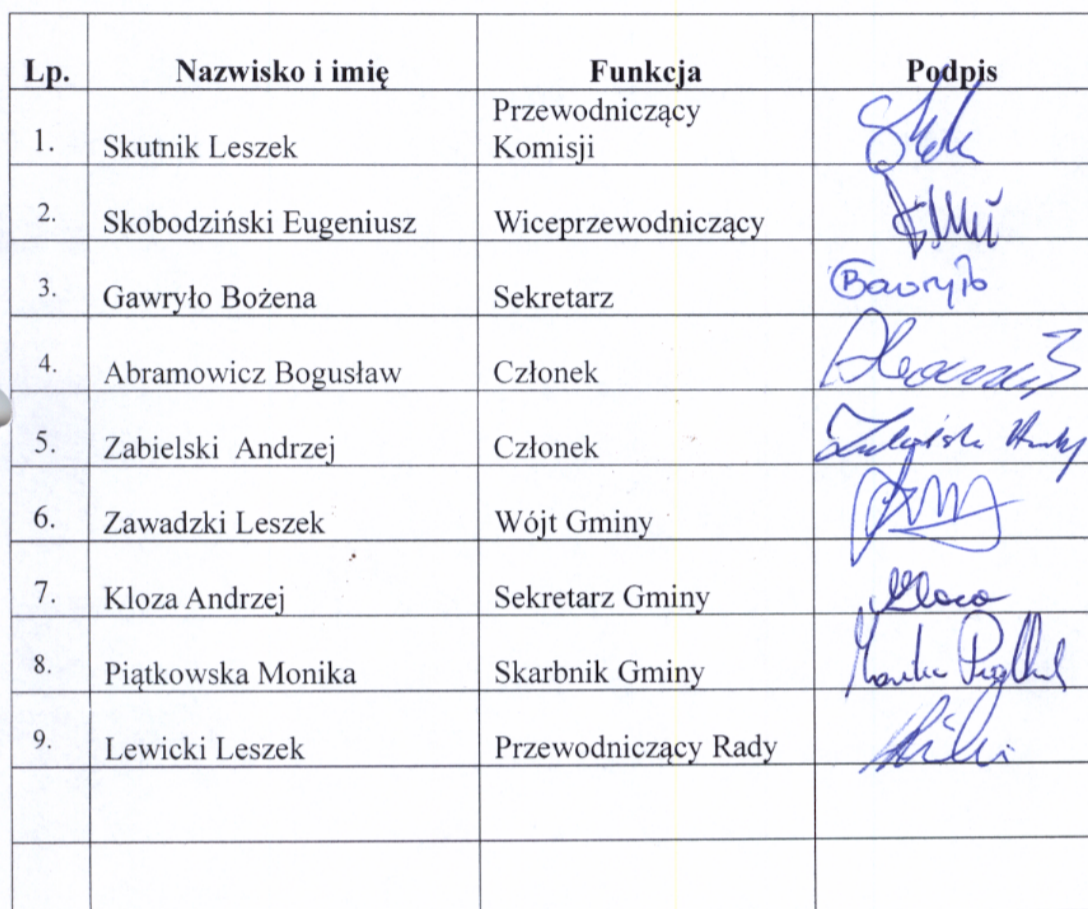 Lp. Nazwisko i imię Funkcja Podpis
1. Skutnik Leszek Przewodniczący Komisji
2. Skobodziński Eugeniusz Wiceprzewodniczący
3. Gawryło Bożena Sekretarz
4. Abramowicz Bogusław Członek
5. Zabielski Andrzej Członek
6. Zawadzki Leszek Wójt Gminy
7. Kloza Andrzej Sekretarz Gminy
8. Piątkowska Monika Skarbnik Gminy Monika
9. Lewicki Leszek Przewodniczący Rady